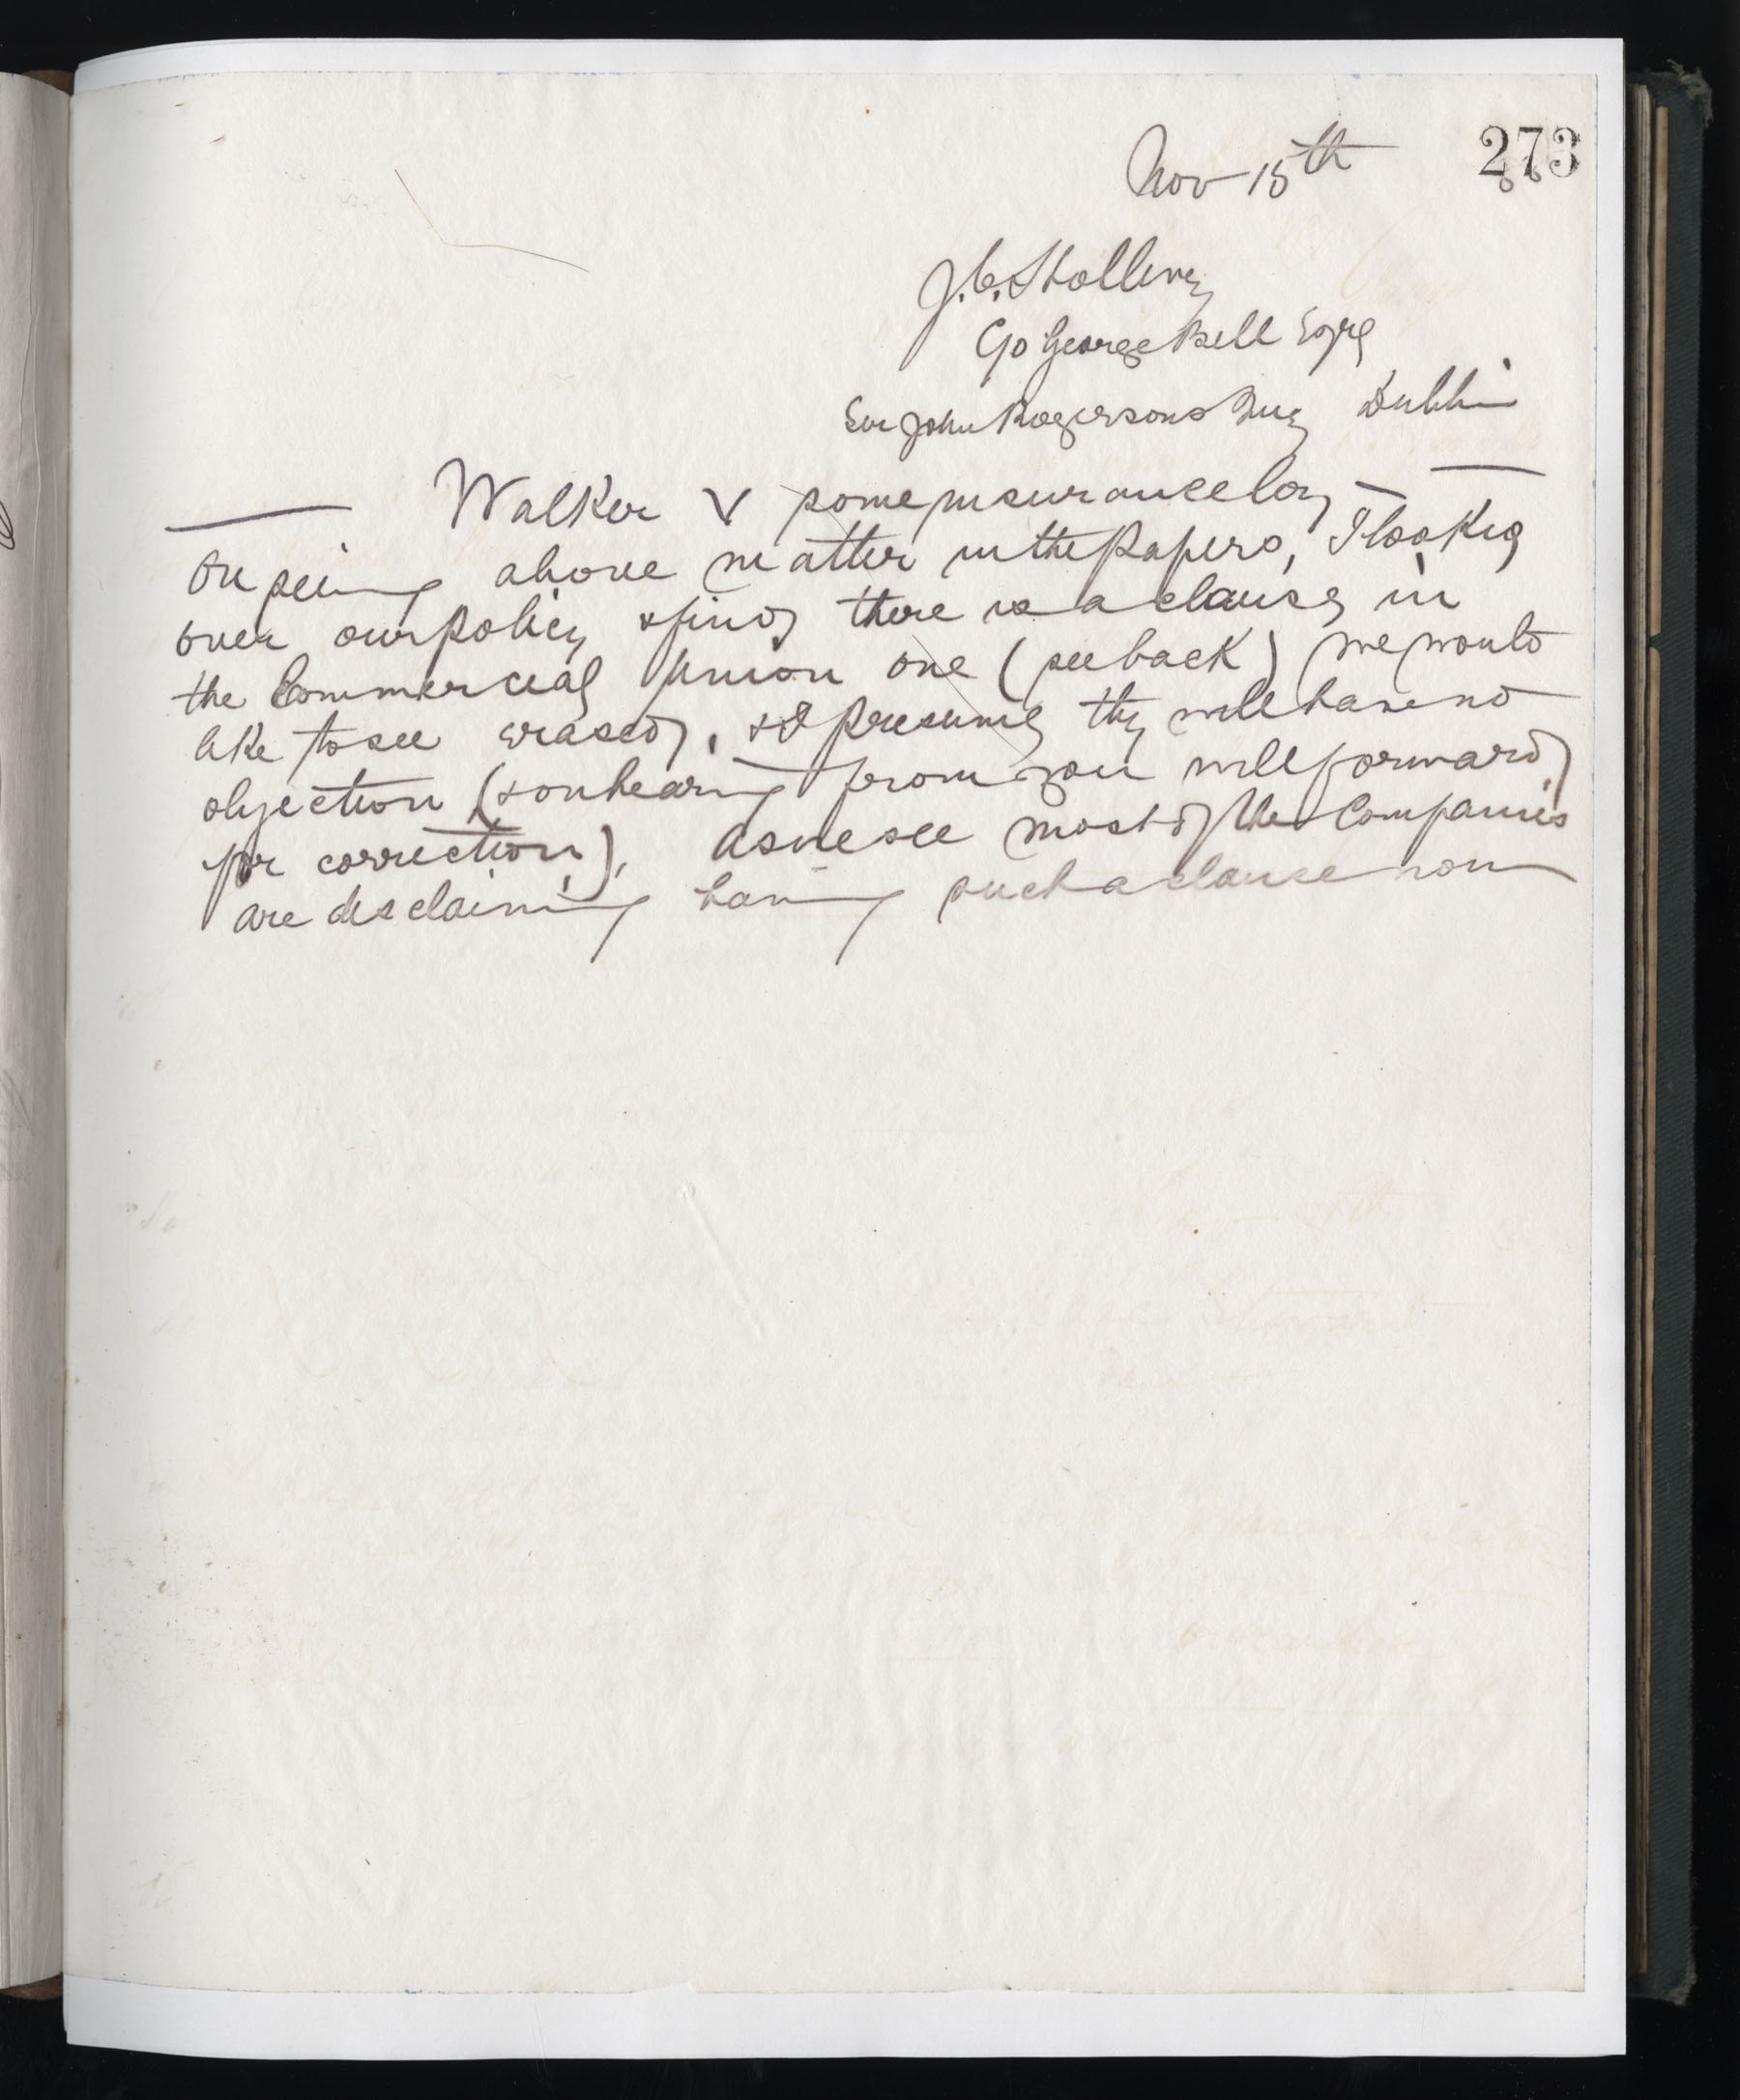 273
Nov 15th
J. C. Stollery
C/o George Bell Esqre
Sir John Rogersons Quay Dublin
Walker V some insurance Coy
On seeing above matter in the Papers, I looked
over our policy & find there is a clause in
the Commercial Union one (see back) we would
like to see erased, & I presume they will have no
objection (& on hearing from you will forward
for correction), as we see most of the Companies
are disclaiming having such a clause now